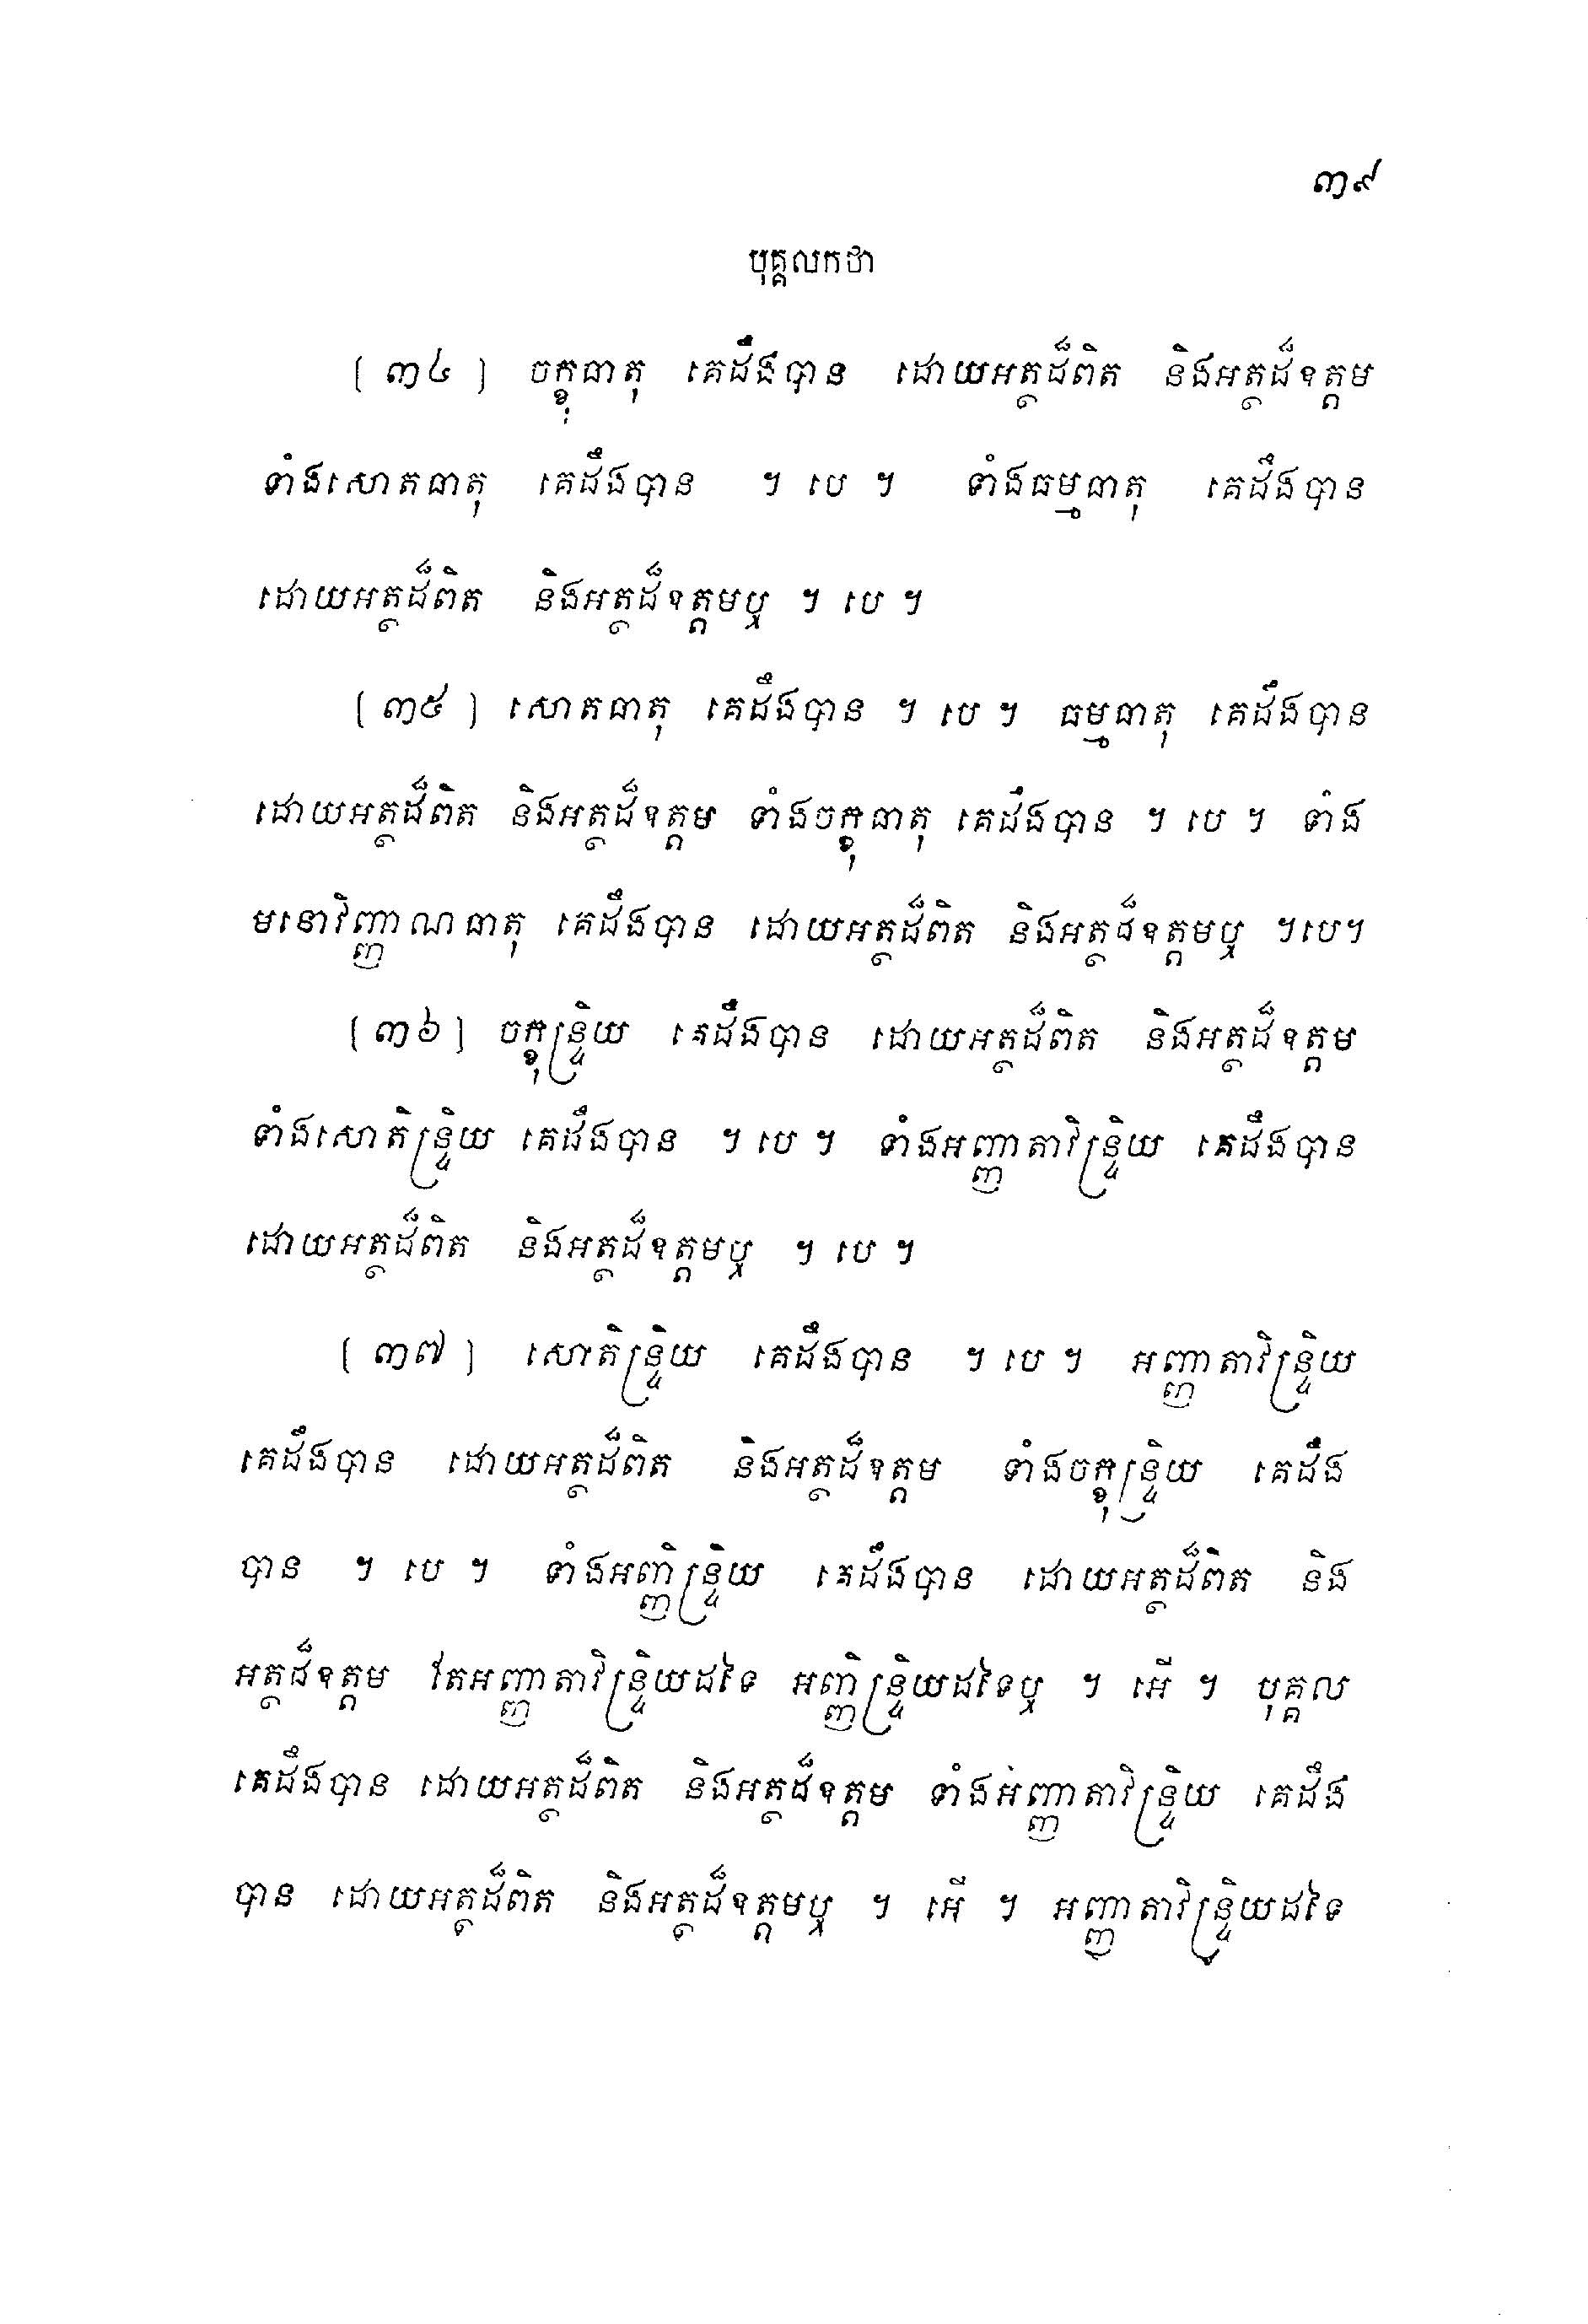 ៣៩
បុគ្គលកថា
[ ៣៤ ] ចក្ខុធាតុ គេដឹងបាន ដោយអត្ថដ៏ពិត និងអត្ថដ៏ឧត្តម
ទាំងសោតធាតុ គេដឹងបាន ។ បេ ។ ទាំងធម្មធាតុ គេដឹងបាន
ដោយអត្ថដ៏ពិត និងអត្ថដ៏ឧត្តមឬ ។ បេ ។
[ ៣៥ ] សោតធាតុ គេដឹងបាន ។ បេ ។ ធម្មធាតុ គេដឹងបាន
ដោយអត្ថដ៏ពិត និងអត្ថដ៏ឧត្តម ទាំងចក្ខុធាតុ គេដឹងបាន ។ បេ ។ ទាំង
មនោវិញ្ញាណធាតុ គេដឹងបាន ដោយអត្ថដ៏ពិត និងអត្ថដ៏ឧត្តមឬ ។បេ។
[ ៣៦ ] ចក្ខុន្ទ្រិយ គេដឹងបាន ដោយអត្ថដ៏ពិត និងអត្ថដ៏ឧត្តម
ទាំងសោតិន្ទ្រិយ គេដឹងបាន ។ បេ ។ ទាំងអញ្ញាតាវិន្ទ្រិយ គេដឹងបាន
ដោយអត្ថដ៏ពិត និងអត្ថដ៏ឧត្តមឬ ។ បេ ។
[ ៣៧ ] សោតិន្ទ្រិយ គេដឹងបាន ។ បេ ។ អញ្ញាតាវិន្ទ្រិយ
គេដឹងបាន ដោយអត្ថដ៏ពិត និងអត្ថដ៏ឧត្តម ទាំងចក្ខុន្ទ្រិយ គេដឹង
បាន ។ បេ ។ ទាំងអញ្ញិន្ទ្រិយ គេដឹងបាន ដោយអត្ថដ៏ពិត និង
អត្ថដ៏ឧត្តម តែអញ្ញាតាវិន្ទ្រិយដទៃ អញ្ញិន្ទ្រិយដទៃឬ ។ អើ ។ បុគ្គល
គេដឹងបាន ដោយអត្ថដ៏ពិត និងអត្ថដ៏ឧត្តម ទាំងអញ្ញាតាវិន្ទ្រិយ គេដឹង
បាន ដោយអត្ថដ៏ពិត និងអត្ថដ៏ឧត្តមឬ ។ អើ ។ អញ្ញាតាវិន្ទ្រិយដទៃ